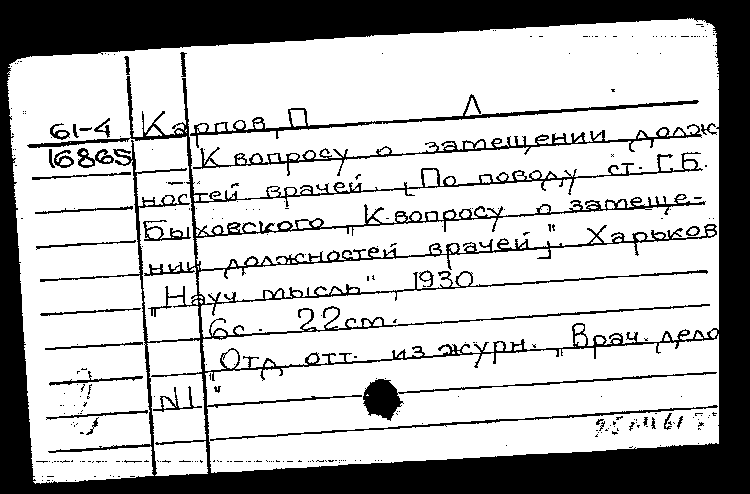 61-4 Карпов, П Л
16865 К вопросу о замещении долж-
ностей врачей. [По поводу ст. Г.Б.
Быховского „К вопросу о замеще-
нии должностей врачей]". Харьков
„Науч. мысль", 1930
6с. 22см.
„Отд. отт. из журн. „Врач. дело
N1"